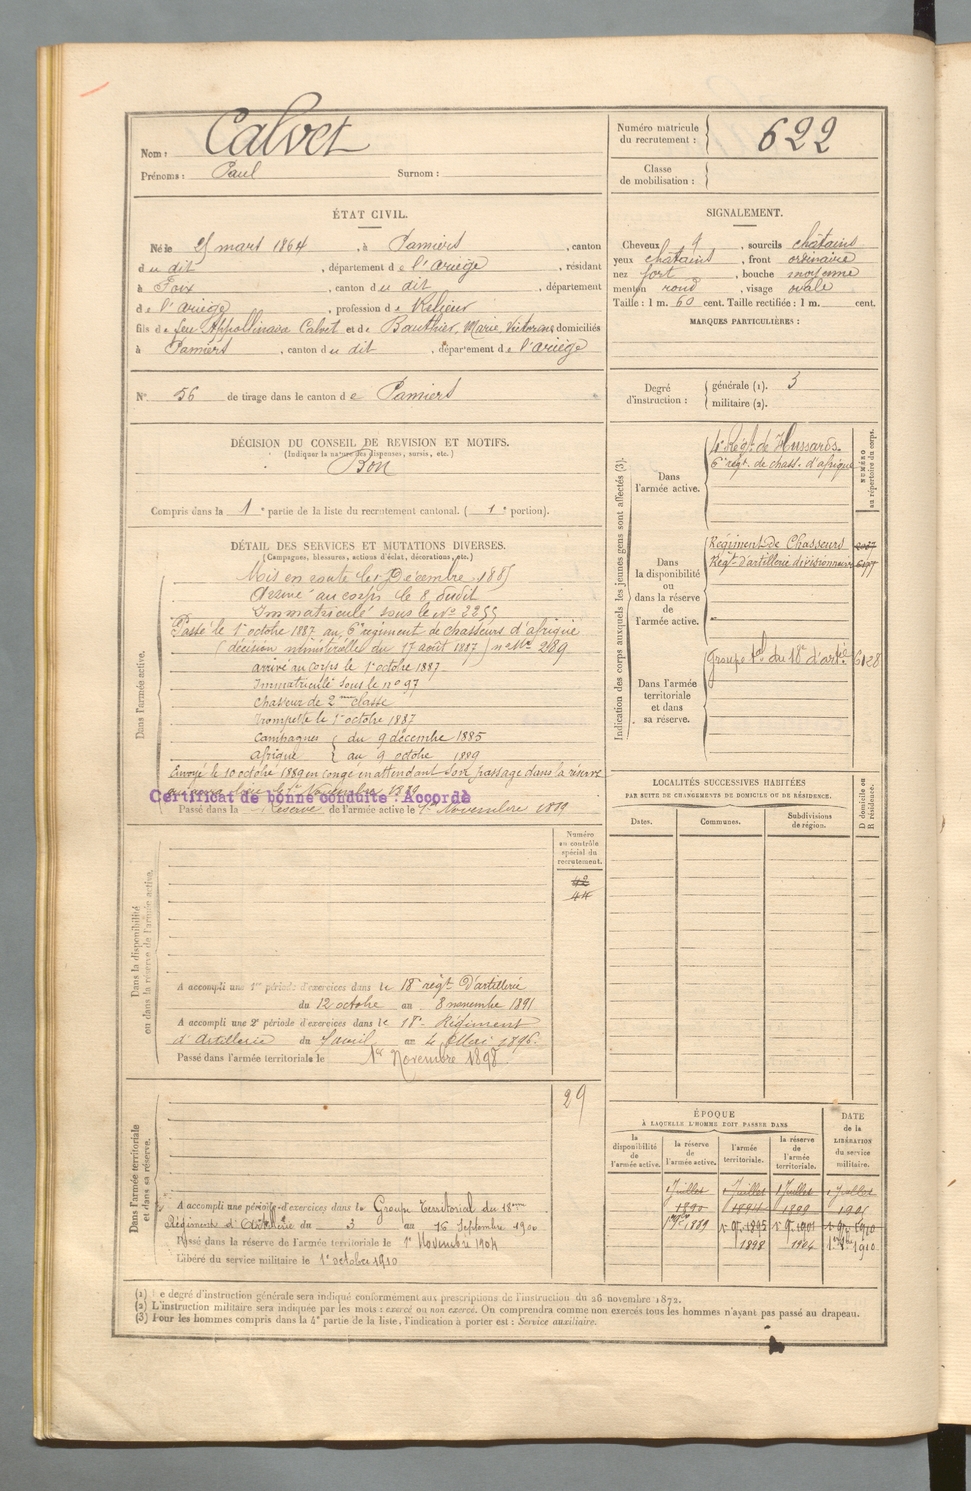 Nom : Calvet
Prénoms : Paul Surnom :
Numéro matricule du recrutement : 622
Classe de mobilisation :
ÉTAT CIVIL.
Né le 25 mars 1864, à Pamiers, canton
du dit, département de l'ariège, résidant
à Foix, canton du dit, département
de l'ariège, profession de Relieur
fils de feu Appollinava Calvet et de Bauthier, Marie, Victorine domiciliés
à Pamiers, canton du dit, département de l'ariège
N° 56 de tirage dans le canton de Pamiers
SIGNALEMENT.
Cheveux d, sourcils châtains
yeux châtains, front ordinaire
nez fort, bouche moyenne
menton rond, visage ovale
Taille : 1 m. 60 cent. Taille rectifiée : 1 m. cent.
MARQUES PARTICULIÈRES :
Degré d'instruction : générale (1). 3
militaire (2).
DÉCISION DU CONSEIL DE REVISION ET MOTIFS.
(Indiquer la nature des dispenses, sursis, etc.)
Bon
Compris dans la 1e partie de la liste du recrutement cantonal. (1e portion).
DÉTAIL DES SERVICES ET MUTATIONS DIVERSES.
(Campagnes, blessures, actions d'éclat, décorations, etc.)
Dans l'armée active.
Mis en route le 1 Décembre 1885
Arrivé au corps le 8 dudit
Immatriculé sous le No 2855
Passé le 1er octobre 1887 au 6e régiment de chasseurs d'afrique
(décision ministérielle du 17 août 1887) n° Mle 289
arrivé au corps le 1er octobre 1887
Immatriculé sous le n° 97
Chasseur de 2me classe
Trompette le 1er octobre 1887
Campagnes { du 9 décembre 1885
afrique } au 9 octobre 1889
Envoyé le 10 octobre 1889 en congé en attendant son passage dans la réserve
qui aura lieu le 1er Novembre 1889
Certificat de bonne conduite : Accordé
Passé dans la Réserve de l'armée active le 1er Novembre 1889
Indication des corps auxquels les jeunes gens sont affectés (3).
NUMÉRO au répertoire du corps.
Dans l'armée active.
4e Régt de Hussards.
6e régt. de chass. d'afrique
Dans la disponibilité ou dans la réserve de l'armée active.
Régiment de Chasseurs
Régt d'artillerie divisionnaire
Dans l'armée territoriale et dans sa réserve.
Groupe tal du 18e d'artie 6128
LOCALITÉS SUCCESSIVES HABITÉES
PAR SUITE DE CHANGEMENTS DE DOMICILE OU DE RÉSIDENCE.
Dates. Communes. Subdivisions de région. D domicile ou R résidence.
Numéro au contrôle spécial du recrutement.
42
44
Dans la disponibilité ou dans la réserve de l'armée active.
A accompli une 1re période d'exercices dans le 18e régt D'artillerie
du 12 octobre au 8 novembre 1891
A accompli une 2e période d'exercices dans le 18e Régiment
d'Artillerie du 7 avril au 4 Mai 1896.
Passé dans l'armée territoriale le 1er Novembre 1898.
29
Dans l'armée territoriale et dans sa réserve.
A accompli une période d'exercices dans le Groupe Territorial du 18eme
Régiment d'Artillerie du 3 au 16 Septembre 1900
Passé dans la réserve de l'armée territoriale le 1er Novembre 1904
Libéré du service militaire le 1er octobre 1910
ÉPOQUE
À LAQUELLE L'HOMME DOIT PASSER DANS
la disponibilité de l'armée active.
la réserve de l'armée active.
l'armée territoriale.
la réserve de l'armée territoriale.
DATE de la LIBÉRATION du service militaire.
1 Juillet 1 Juillet 1 Juillet 1 Juillet
1890 1894 1899 1905
1er 9bre 1889 1er 9bre 1895 1er 9bre 1901 1er 9bre 1910
1898 1904 1er 8bre 1910
(1) Le degré d'instruction générale sera indiqué conformément aux prescriptions de l'instruction du 26 novembre 1872.
(2) L'instruction militaire sera indiquée par les mots : exercé ou non exercé. On comprendra comme non exercés tous les hommes n'ayant pas passé au drapeau.
(3) Pour les hommes compris dans la 4e partie de la liste, l'indication à porter est : Service auxiliaire.